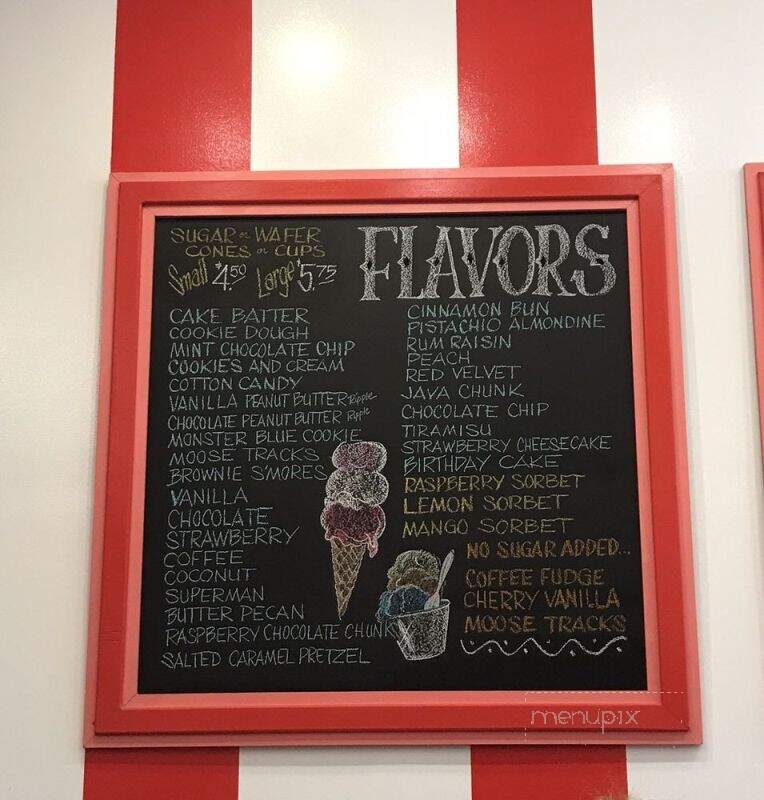 SUGAR or WAFER
CONES or CUPS
Small $4.50 Large $5.75
FLAVORS
CAKE BATTER
COOKIE DOUGH
MINT CHOCOLATE CHIP
COOKIES AND CREAM
COTTON CANDY
VANILLA PEANUT BUTTER Ripple
CHOCOLATE PEANUT BUTTER Ripple
MONSTER BLUE COOKIE
MOOSE TRACKS
BROWNIE S'MORES
VANILLA
CHOCOLATE
STRAWBERRY
COFFEE
COCONUT
SUPERMAN
BUTTER PECAN
RASPBERRY CHOCOLATE CHUNK
SALTED CARAMEL PRETZEL
CINNAMON BUN
PISTACHIO ALMONDINE
RUM RAISIN
PEACH
RED VELVET
JAVA CHUNK
CHOCOLATE CHIP
TIRAMISU
STRAWBERRY CHEESECAKE
BIRTHDAY CAKE
RASPBERRY SORBET
LEMON SORBET
MANGO SORBET
NO SUGAR ADDED...
COFFEE FUDGE
CHERRY VANILLA
MOOSE TRACKS
menupix